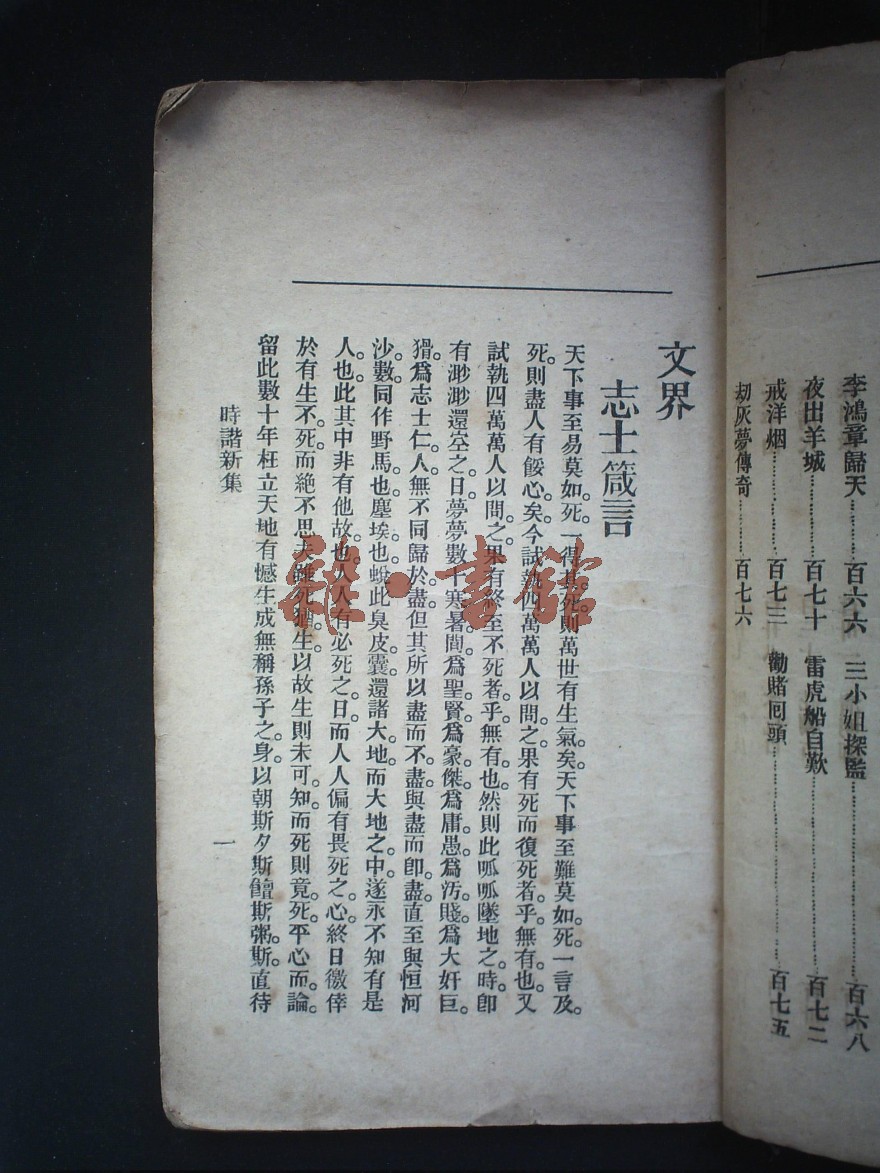 李鴻章歸天………百六六　三小姐探監………百六八
夜出羊城………百七十　雷虎船自歎………百七二
戒洋烟………百七三　勸賭囘頭………百七五
刧灰夢傳奇………百七六
文界
志士箴言
天下事至易莫如死。一得其死。則萬世有生氣矣。天下事至難莫如死。一言及。
死。則盡人有餒心矣。今試執四萬萬人以問之。果有死而復死者乎。無有也。又
試執四萬萬人以問之。果有終至不死者乎。無有也。然則此呱呱墜地之時。卽
有渺渺還空之日。夢夢數十寒暑間。爲聖賢。爲豪傑。爲庸愚。爲汚賤。爲大奸巨。
猾。爲志士仁人。無不同歸於盡。但其所以盡而不盡。與盡而卽盡。直至與恒河
沙數。同作野馬也。塵埃也。蛻此臭皮囊。還諸大地。而大地之中。遂永不知有是
人也。此其中非有他故也。人人有必死之日。而人人偏有畏死之心。終日徼倖
於有生不死。而絕不思夫雖死猶生。以故生則未可知。而死則竟死。平心而論。
留此數十年枉立天地有憾生成無稱孫子之身。以朝斯夕斯饘斯粥斯。直待
時諧新集
一
雜·書館